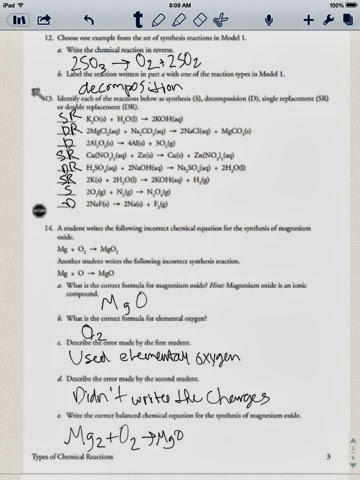 iPad
8:09 AM
100%
12. Choose one example from the set of synthesis reactions in Model 1.
a. Write the chemical reaction in reverse.
2SO₃ → O₂ + 2SO₂
b. Label the reaction written in part a with one of the reaction types in Model 1.
decomposition
13. Identify each of the reactions below as synthesis (S), decomposition (D), single replacement (SR)
or double replacement (DR).
SR K₂O(s) + H₂O(l) → 2KOH(aq)
DR 2MgCl₂(aq) + Na₂CO₃(aq) → 2NaCl(aq) + MgCO₃(s)
D 2Al₂O₃(s) → 4Al(s) + 3O₂(g)
SR Cu(NO₃)₂(aq) + Zn(s) → Cu(s) + Zn(NO₃)₂(aq)
DR H₂SO₄(aq) + 2NaOH(aq) → Na₂SO₄(aq) + 2H₂O(l)
SR 2K(s) + 2H₂O(l) → 2KOH(aq) + H₂(g)
S 2O₂(g) + N₂(g) → N₂O₄(g)
D 2NaF(s) → 2Na(s) + F₂(g)
STOP
14. A student writes the following incorrect chemical equation for the synthesis of magnesium
oxide.
Mg + O₂ → MgO₂
Another student writes the following incorrect synthesis reaction.
Mg + O → MgO
a. What is the correct formula for magnesium oxide? Hint: Magnesium oxide is an ionic
compound.
MgO
b. What is the correct formula for elemental oxygen?
O₂
c. Describe the error made by the first student.
Used elementaly oxygen
d. Describe the error made by the second student.
Didn't write the charges
e. Write the correct balanced chemical equation for the synthesis of magnesium oxide.
Mg₂ + O₂ → MgO
Types of Chemical Reactions
3